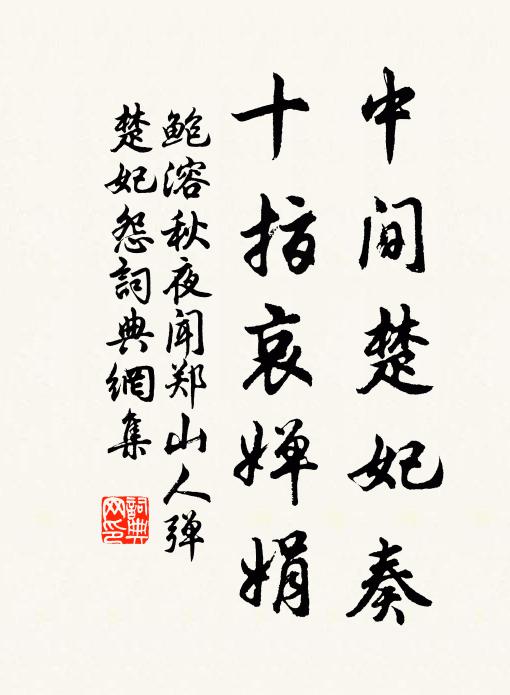 中间楚妃奏
十指哀婵娟
鲍溶秋夜闻郑山人弹
楚妃怨詞典網集
詞典
网印